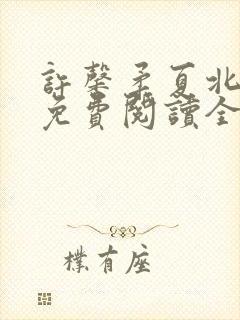 許馨矛夏北
免費閱讀全
樸有座